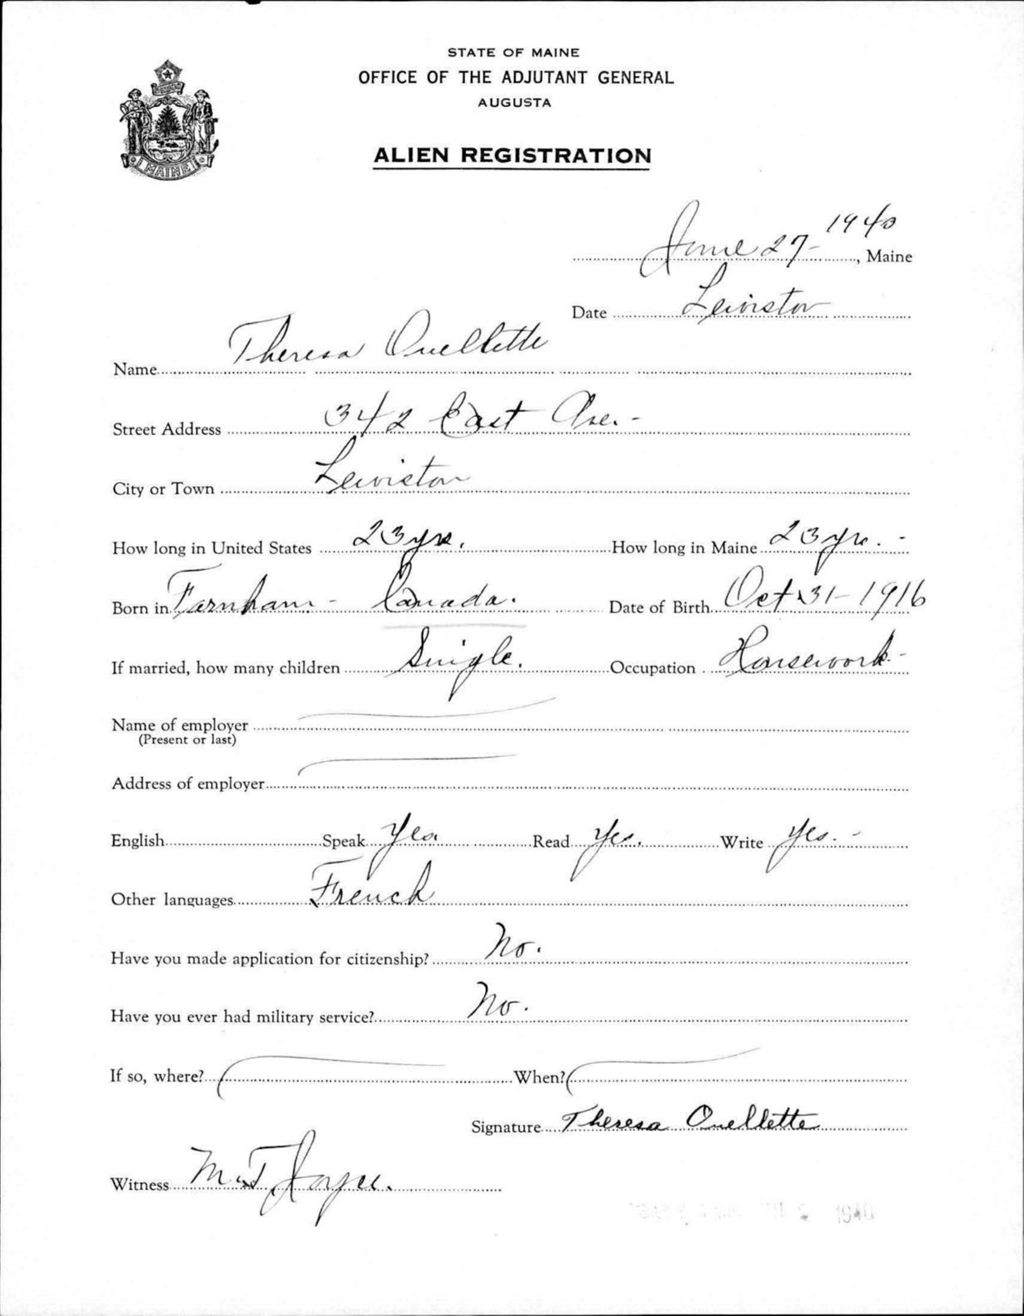 STATE OF MAINE
OFFICE OF THE ADJUTANT GENERAL
AUGUSTA
ALIEN REGISTRATION
MAINE
June 27- 1940, Maine
Date Lewiston
Name Theresa Ouellette
Street Address 342 East Ave. -
City or Town Lewiston
How long in United States 23 yrs. How long in Maine 23 yrs. -
Born in Farnham - Canada. Date of Birth Oct 31 - 1916
If married, how many children Single. Occupation Housework -
Name of employer
(Present or last)
Address of employer
English Speak Yes Read Yes. Write Yes. -
Other languages French
Have you made application for citizenship? No.
Have you ever had military service? No.
If so, where? When?
Signature Theresa Ouellette
Witness M. T. Joyce.
1940